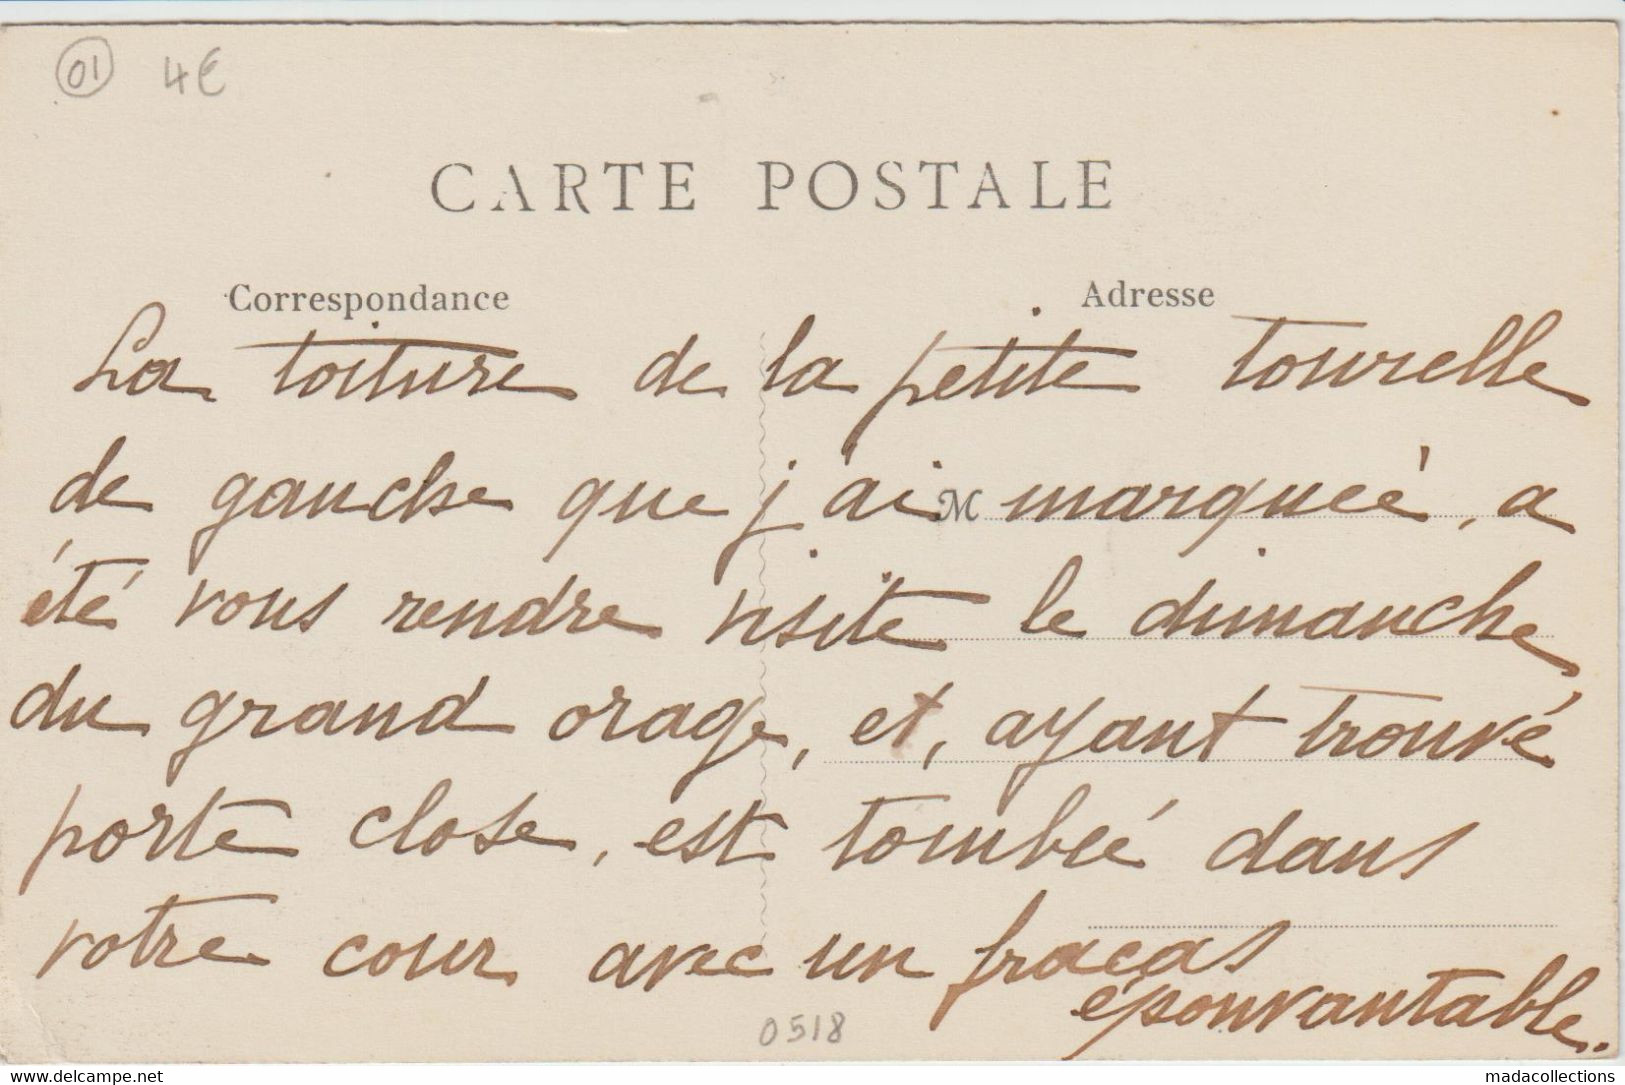 01 4€
CARTE POSTALE
Correspondance
Adresse
La toiture de la petite tourelle
de gauche que j'ai marquée, a
M
été vous rendre visite le dimanche
du grand orage, et, ayant trouvé
porte close, est tombée dans
votre cour avec un fracas
épouvantable.
0518
www.delcampe.net
madacollections